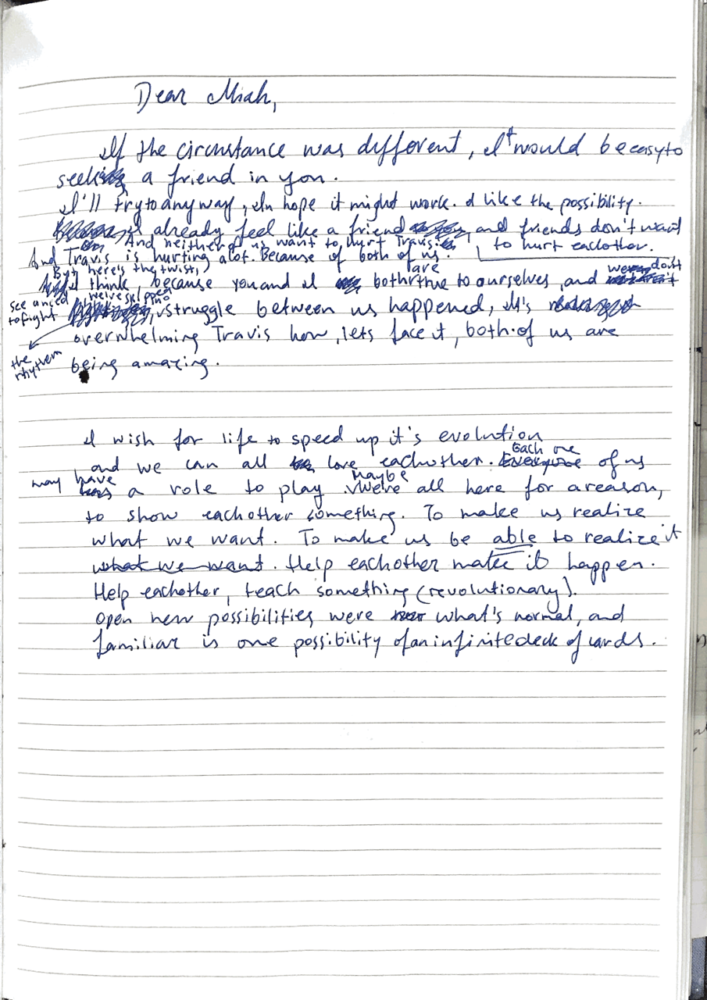 Dear Miah,
If the circumstance was different, It would be easy to
seek a friend in you.
I'll try to anyway, I'm hope it might work. I like the possibility.
I already feel like a friend and friends don't want
to hurt eachother.
And neither of us want to hurt Travis.
And Travis is hurting alot. Because of both of us.
But here's the twist,
I think, because you and I are both true to ourselves, and we don't
see a need
to fight
we've slipped into
the
rhythem
struggle between us happened, It's
overwhelming Travis how, lets face it, both of us are
being amazing.
I wish for life to speed up it's evolution
and we can all love eachother. Each one of us
may have a role to play. Maybe We're all here for a reason,
to show eachother something. To make us realize
what we want. To make us be able to realize it
what we want. Help eachother make it happen.
Help eachother, teach something (revolutionary).
Open new possibilities were what's normal, and
familiar is one possibility of an infinite deck of cards.